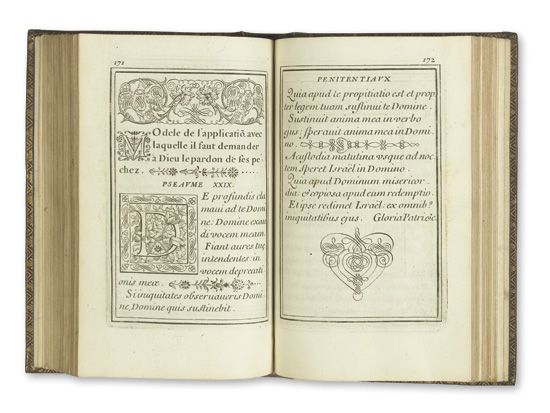 171
Modele de l'applicatiõ avec
laquelle il faut demander
a Dieu le pardon de ses pe
chez.
PSEAVME XXIX.
De profundis cla
maui ad te Domi
ne: Domine exau
di vocem meam.
Fiant aures tuę
intendentes: in
vocem deprecati
onis meæ.
Si iniquitates observaueris Domi
ne, Domine quis sustinebit.
172
PENITENTIAVX
Quia apud te propitiatio est et prop
ter legem tuam sustinui te Domine.
Sustinuit anima mea in verbo
ejus; sperauit anima mea in Domi
no.
A custodia matutina vsque ad noc
tem speret Israël in Domino.
Quia apud Dominum misericor
dia: et copiosa apud eum redemptio.
Et ipse redimet Israël: ex omnib9
iniquitatibus ejus. Gloria Patri &c.